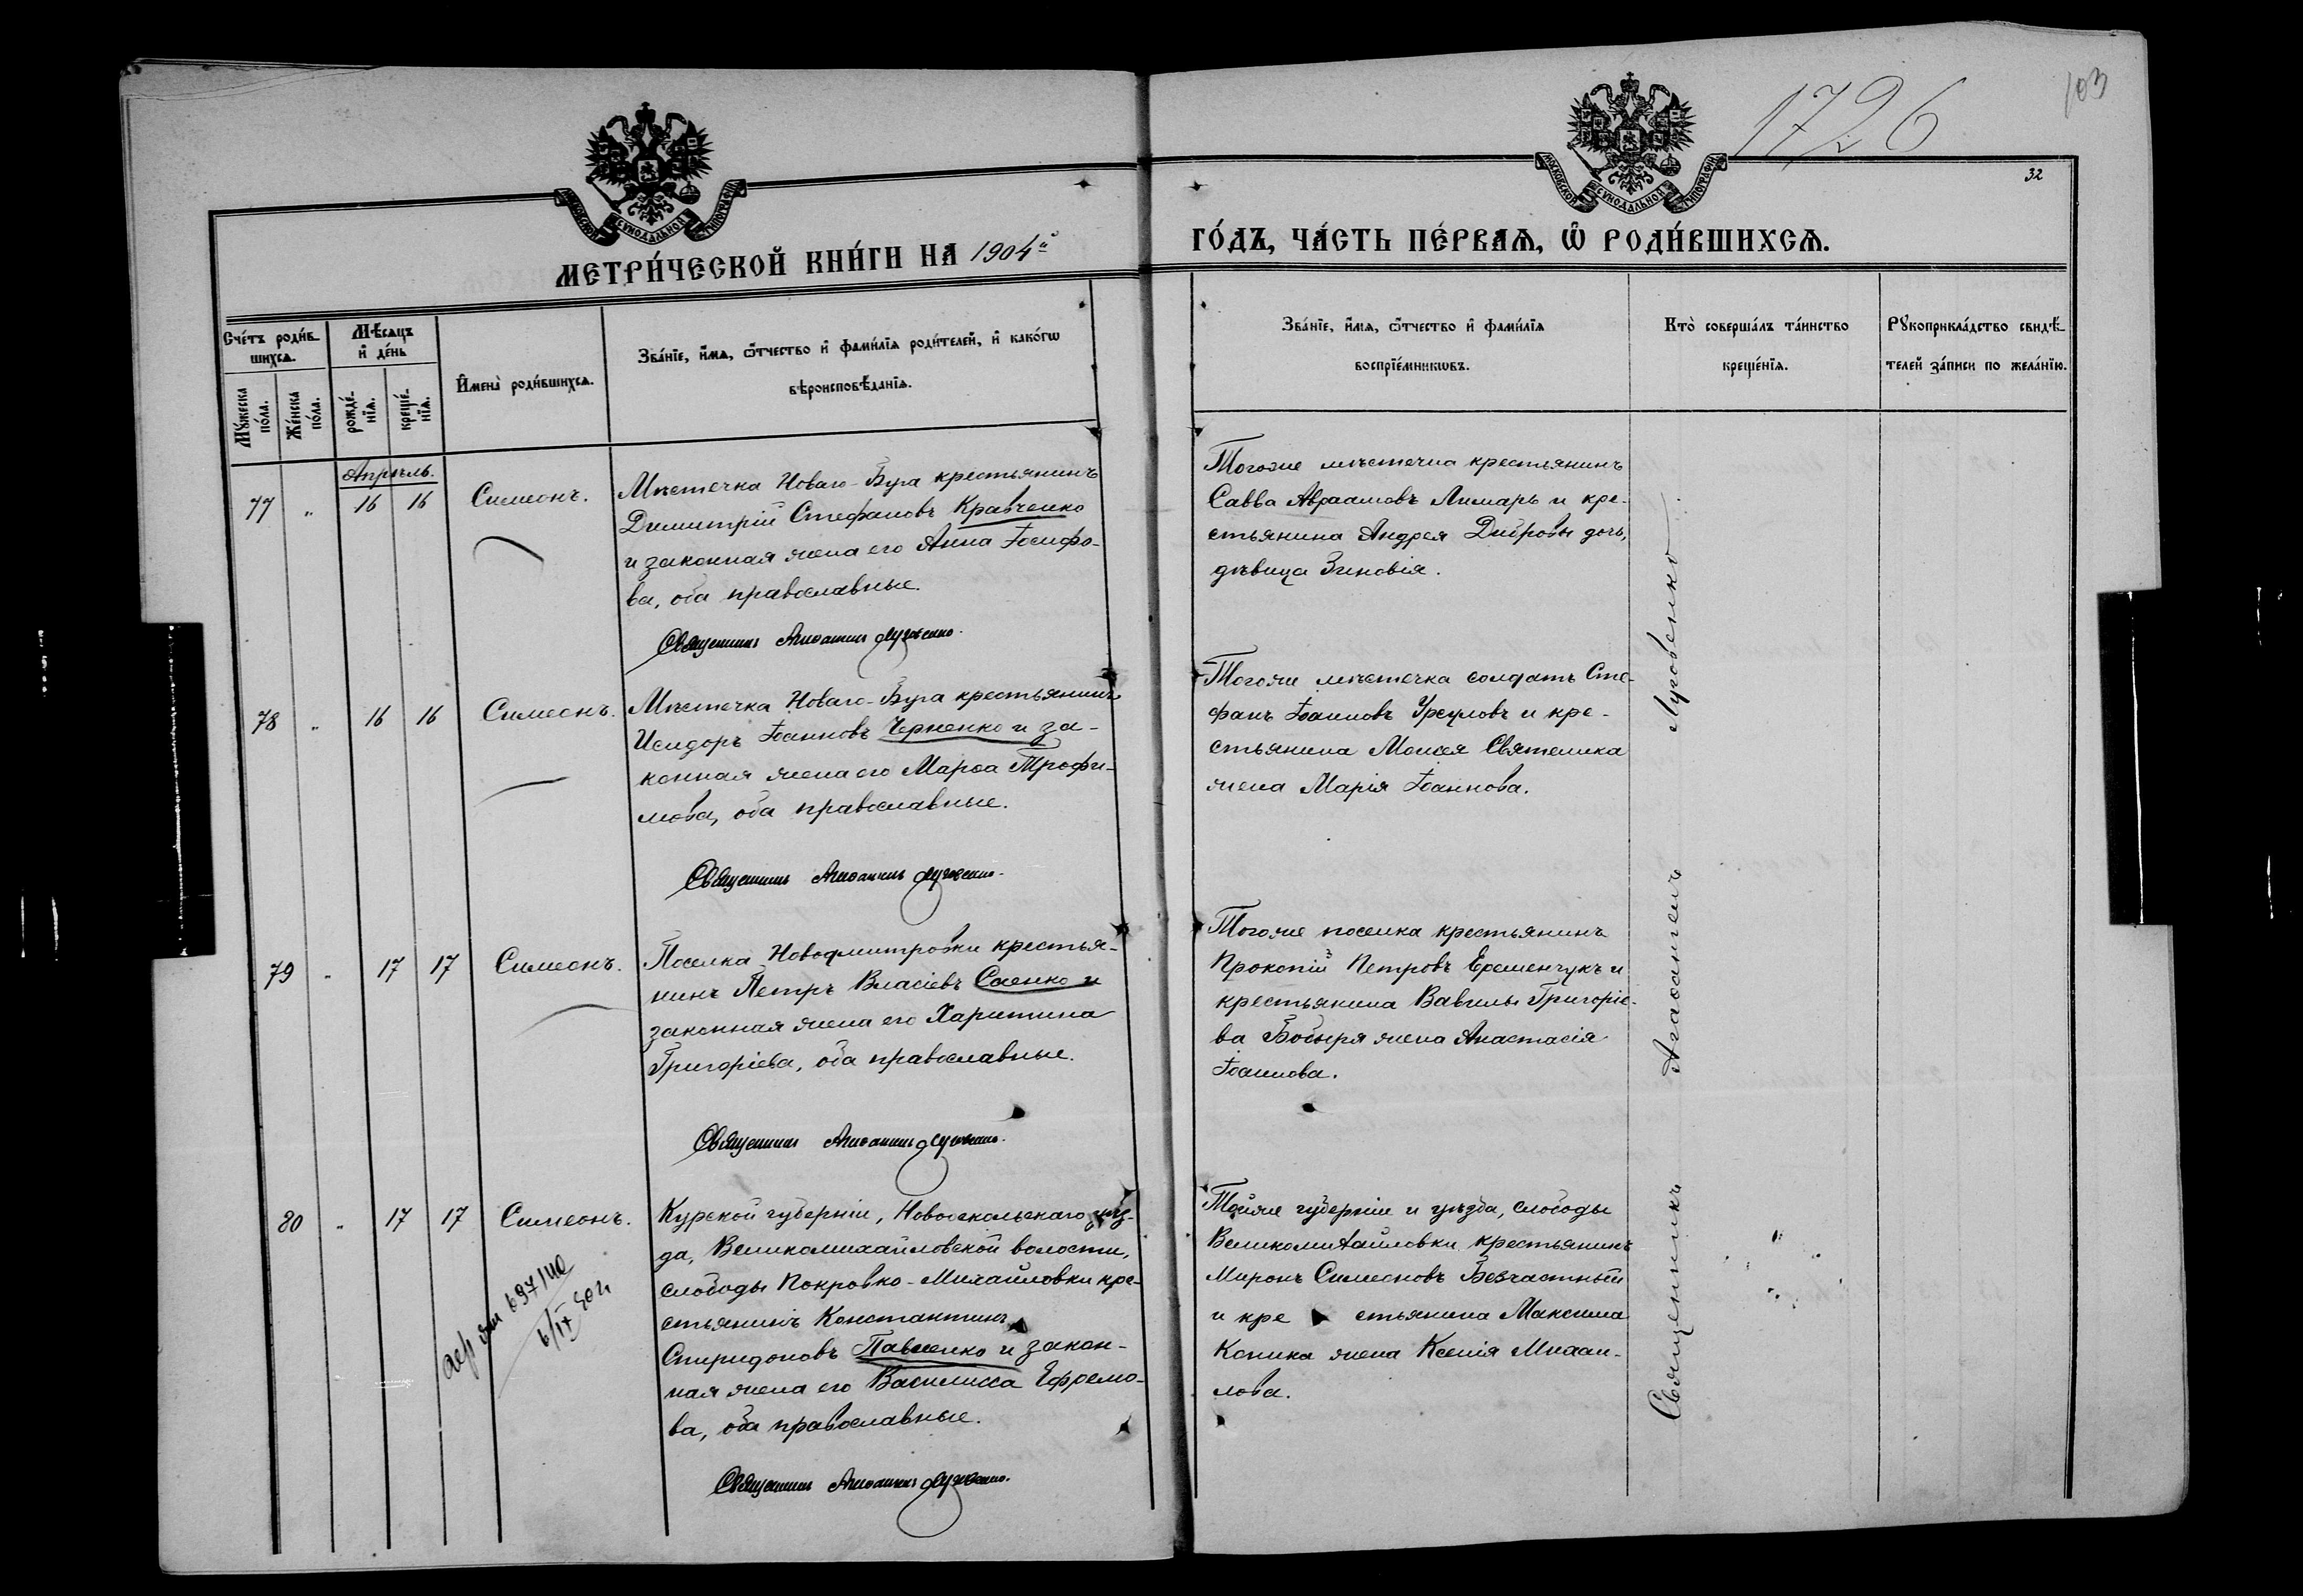 1726
103
32
МОСКОВСКОЙ СѴНОДАЛЬНОЙ ТИПОГРАФІИ
МОСКОВСКОЙ СѴНОДАЛЬНОЙ ТИПОГРАФІИ
МЕТРИ́ЧЕСКОЙ КНИ́ГИ НА 1904й
ГО́ДЪ, ЧА́СТЬ ПЕ́РВАѦ, Ѿ РОДИ́ВШИХСѦ.
Сче́тъ роди́в-
шихсѧ.
Мꙋ́жеска
по́ла.
Же́нска
по́ла.
Мѣ́сѧцъ
и҆ де́нь
рожде́-
нїѧ.
креще́-
нїѧ.
И҆мена̀ роди́вшихсѧ.
Зва́нїе, и҆́мѧ, ѻ҆́тчество и҆ фами́лїѧ роди́телей, и҆ како́гѡ
вѣроисповѣ́данїѧ.
Зва́нїе, и҆́мѧ, ѻ҆́тчество и҆ фами́лїѧ
воспрїе́мникѡвъ.
Кто̀ соверша́лъ та́инство
креще́нїѧ.
Рꙋкоприкла́дство свидѣ́-
телей за́писи по жела́нїю.
Апрѣль.
77 „ 16 16 Симеонъ.
Мѣстечка Новаго-Буга крестьянинъ
Димитрій Стефановъ Кравченко
и законная жена его Анна Іосифо-
ва, оба православные.
Священникъ Агаѳангелъ Луговенко.
Тогоже мѣстечка крестьянинъ
Савва Авраамовъ Лимарь и кре-
стьянина Андрея Диброва дочь,
дѣвица Зиновія.
78 „ 16 16 Симеонъ.
Мѣстечка Новаго-Буга крестьянинъ
Исидоръ Іоанновъ Черненко и за-
конная жена его Марѳа Трофи-
мова, оба православные.
Священникъ Агаѳангелъ Луговенко.
Тогоже мѣстечка солдатъ Сте-
фанъ Іоанновъ Урсуловъ и кре-
стьянина Моисея Святенка
жена Марія Іоаннова.
79 „ 17 17 Симеонъ.
Поселка Новодмитровки крестья-
нинъ Петръ Власіевъ Саенко и
законная жена его Харитина
Григоріева, оба православные.
Священникъ Агаѳангелъ Луговенко.
Тогоже поселка крестьянинъ
Прокопій Петровъ Еременчукъ и
крестьянина Вавилы Григоріе-
ва Бобыря жена Анастасія
Іоаннова.
80 „ 17 17 Симеонъ.
Курской губерніи, Новооскольскаго уѣз-
да, Великомихайловской волости,
слободы Покровко-Михайловки кре-
стьянинъ Константинъ
Спиридоновъ Павленко и закон-
ная жена его Василисса Ефремо-
ва, оба православные.
Священникъ Агаѳангелъ Луговенко.
Тойже губерніи и уѣзда, слободы
Великомихайловки крестьянинъ
Миронъ Симеоновъ Безчастный
и кре стьянина Максима
Коника жена Ксенія Михаи-
лова.
Священникъ Агаѳангелъ Луговенко.